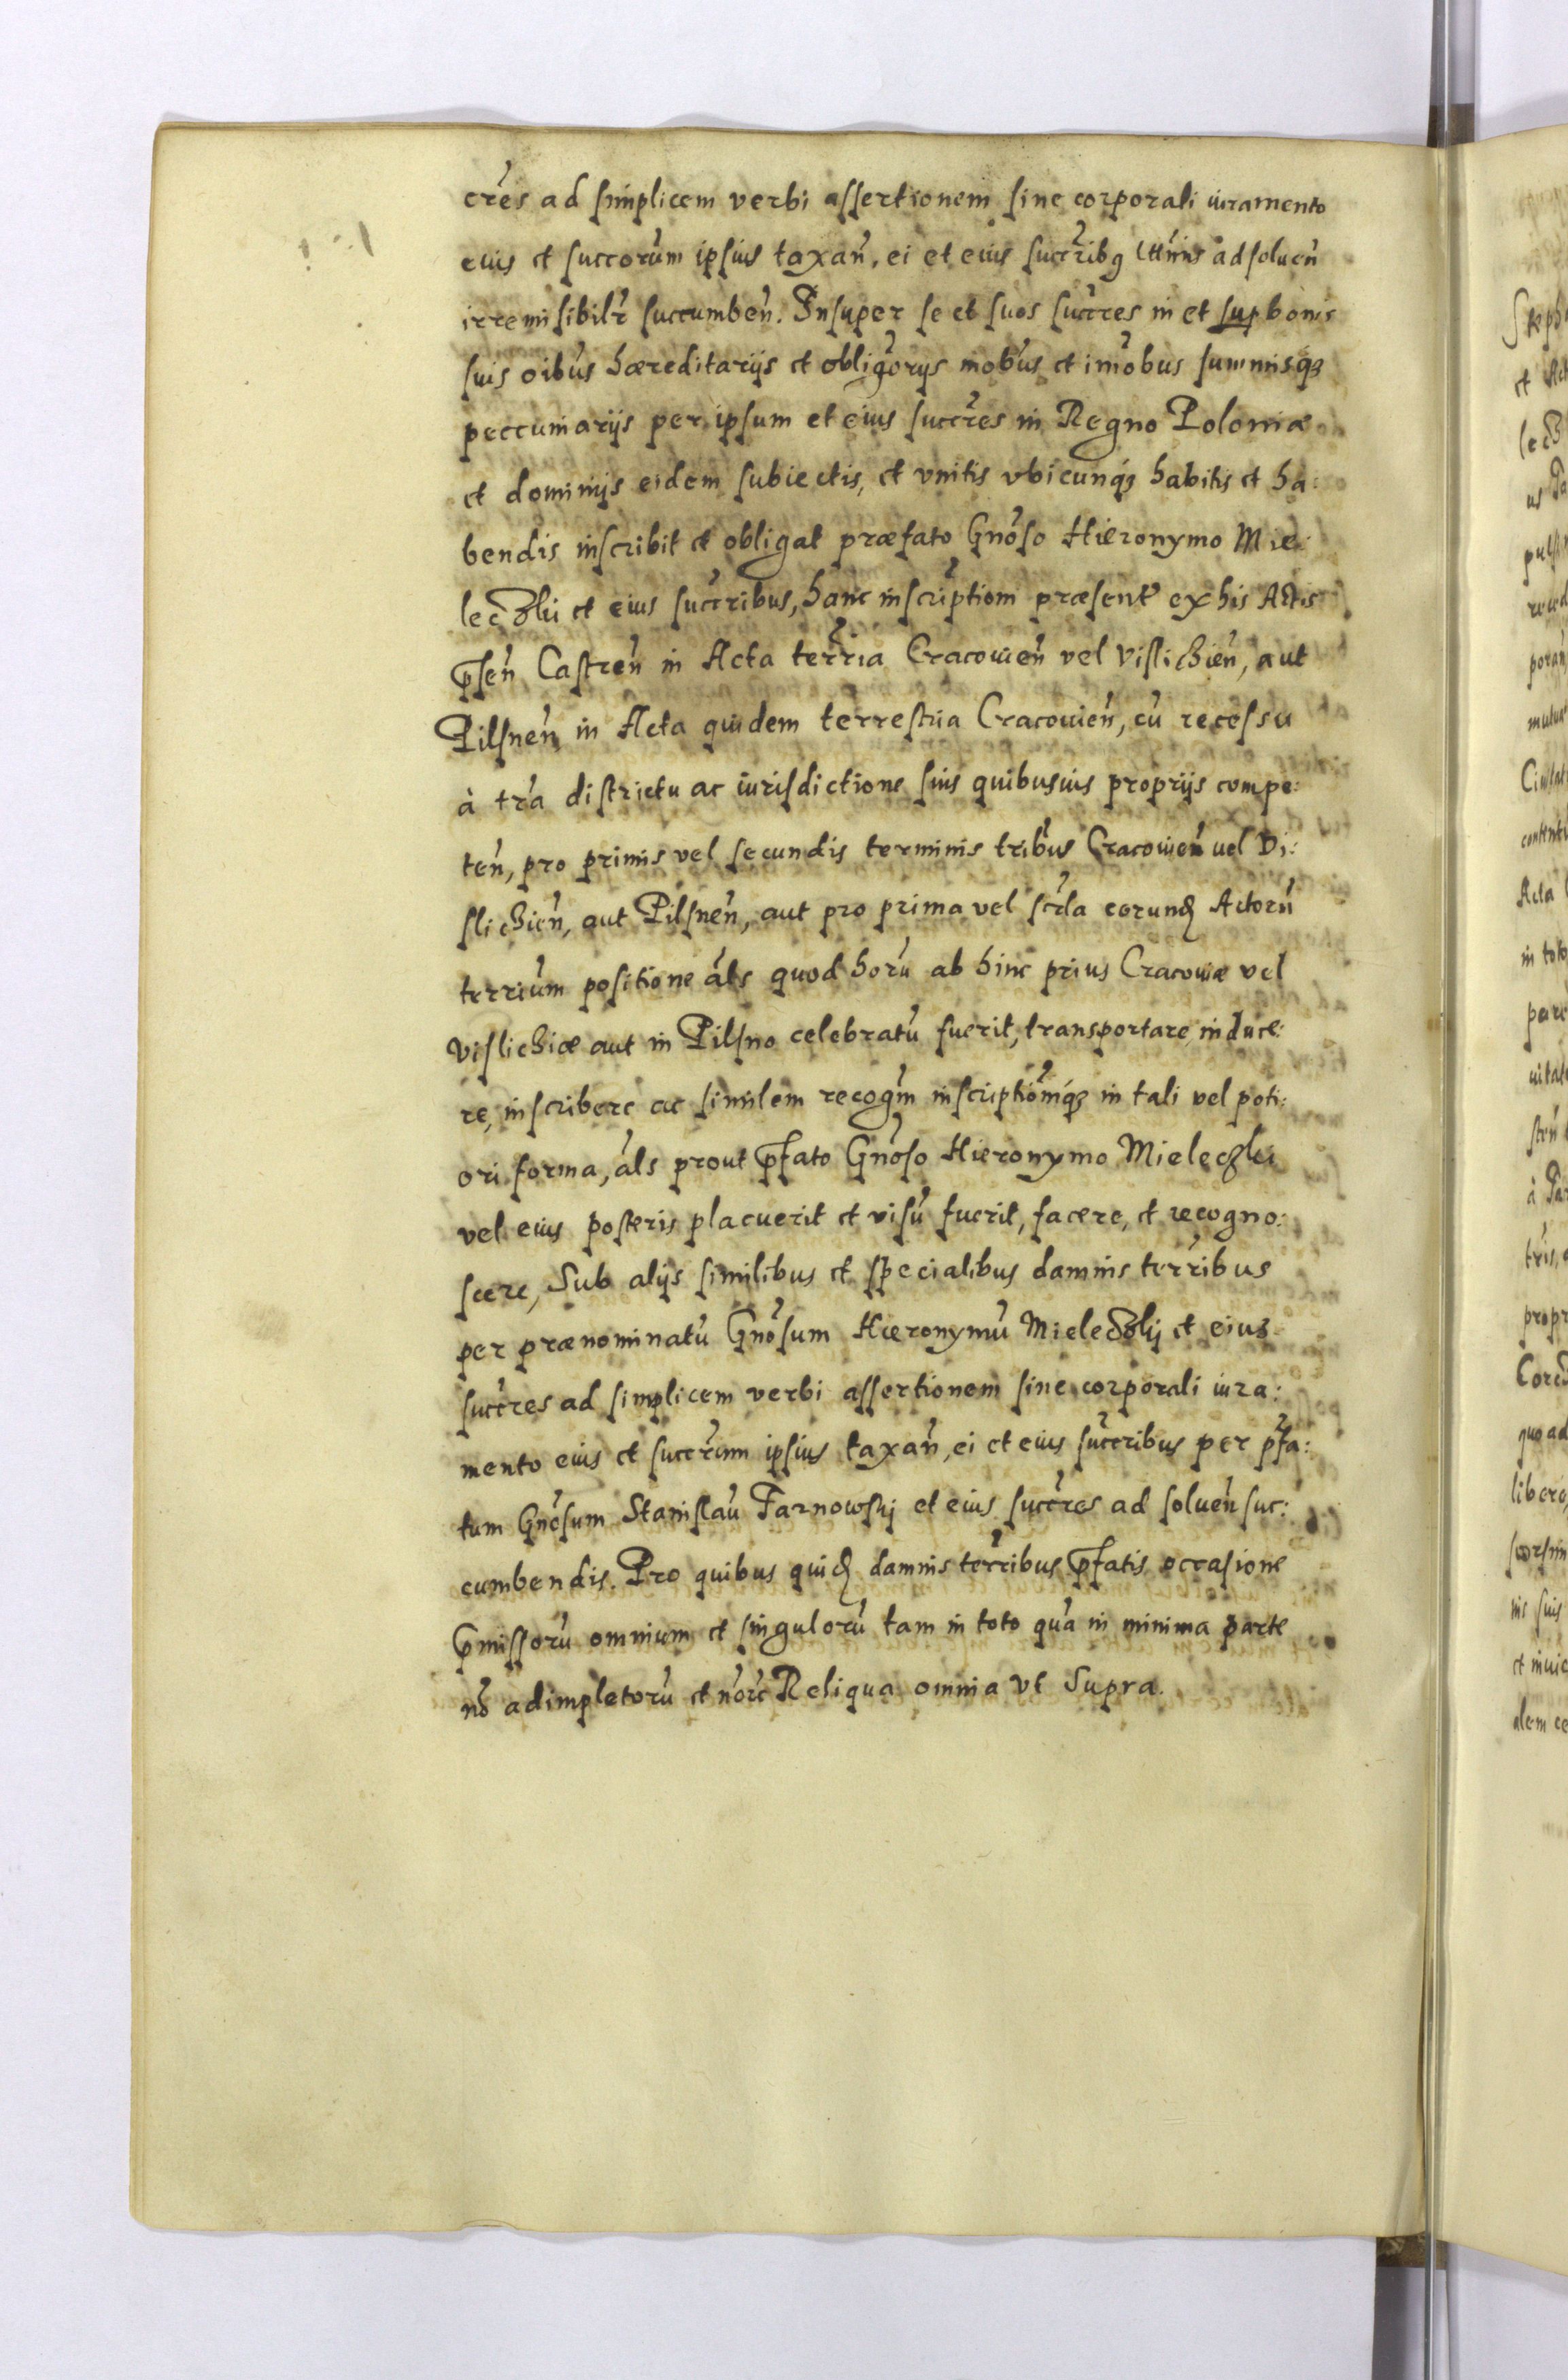 cres ad simplicem verbi assertionem sine corporali iuramento
eius et succorum ipsius taxan, ei et eius succribq ad soluen
irremisibilr succumben. Insuper se et suos succres in et sup bonis
suis oibus hæreditarijs et obligorijs mobus et imobus summisq3
peccuniarijs per ipsum et eius succres in Regno Poloniæ
et dominijs eidem subiectis, et vnitis vbicunq3 habitis et ha:
bendis inscribit et obligat præfato Gnoso Hieronymo Mie:
leczki et eius succribus, hanc inscriptiom præsent ex his Actis
psen Castren in Acta terria Cracouien vel Vislichien, aut
Pilsnen in Acta quidem terrestria Cracouien, cu recessu
à tra districtu ac iurisdictione suis quibusuis proprijs compe:
ten, pro primis vel secundis terminis tribus Cracouien vel Vi:
slichien, aut Pilsnen, aut pro prima vel scda eorund Actoru
terrium positione als quod horu ab hinc prius Cracouiæ vel
Vislichiæ aut in Pilsno celebratu fuerit, transportare, induce:
re, inscribere ac similem recogm inscriptiomq3 in tali vel poti:
ori forma, als prout pfato Gnoso Hieronymo Mieleczki
vel eius posteris placuerit et visu fuerit, facere, et recogno:
scere, Sub alijs similibus et specialibus damnis terribus
per prænominatu Gnosum Hieronymu Mieleczkij et eius
succres ad simplicem verbi assertionem sine corporali iura:
mento eius et succrum ipsius taxan, ei et eius succribus per pfa:
tum Gnosum Stanislau Tarnowskj et eius succres ad soluen suc:
cumbendis. Pro quibus quid damnis terribus pfatis occasione
pmissoru omnium et singuloru tam in toto qua in minima parte
no adimpletoru et Reliqua omnia vt Supra.